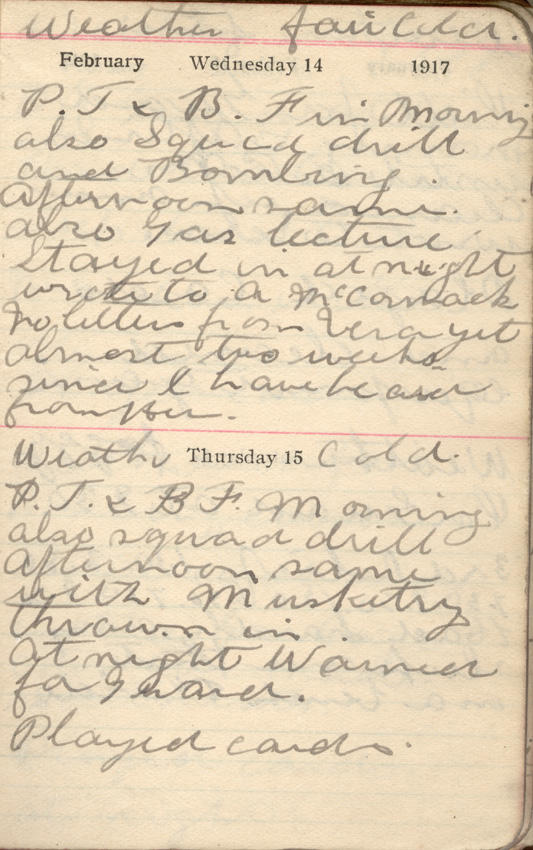 Weather fair Cold.
February Wednesday 14 1917
P. T & B. F in Morning
also Squad drill
and Bombing.
afternoon same.
also Gas lecture
Stayed in at night
wrote to A McCormack
No letters from Vera yet
almost two weeks
since I have heard
from Her.
Weather Thursday 15 Cold.
P. T. & B F. Morning
also squad drill
afternoon same
with Musketry
thrown in.
At night Warned
for Guard.
Played cards.